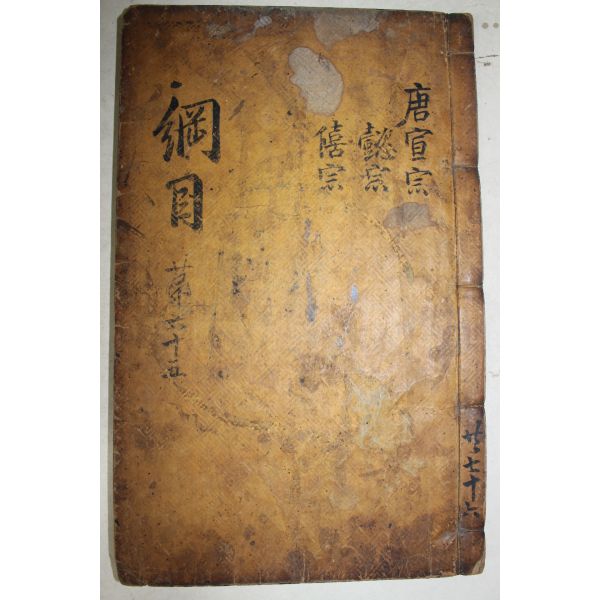 唐宣宗
懿宗
僖宗
綱目
第六十五
共七十六